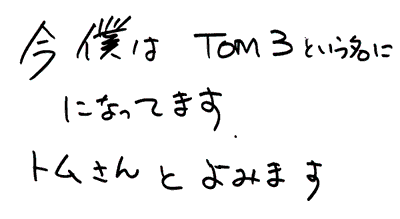 今僕は TOM3という名に
になってます
トムさんとよみます